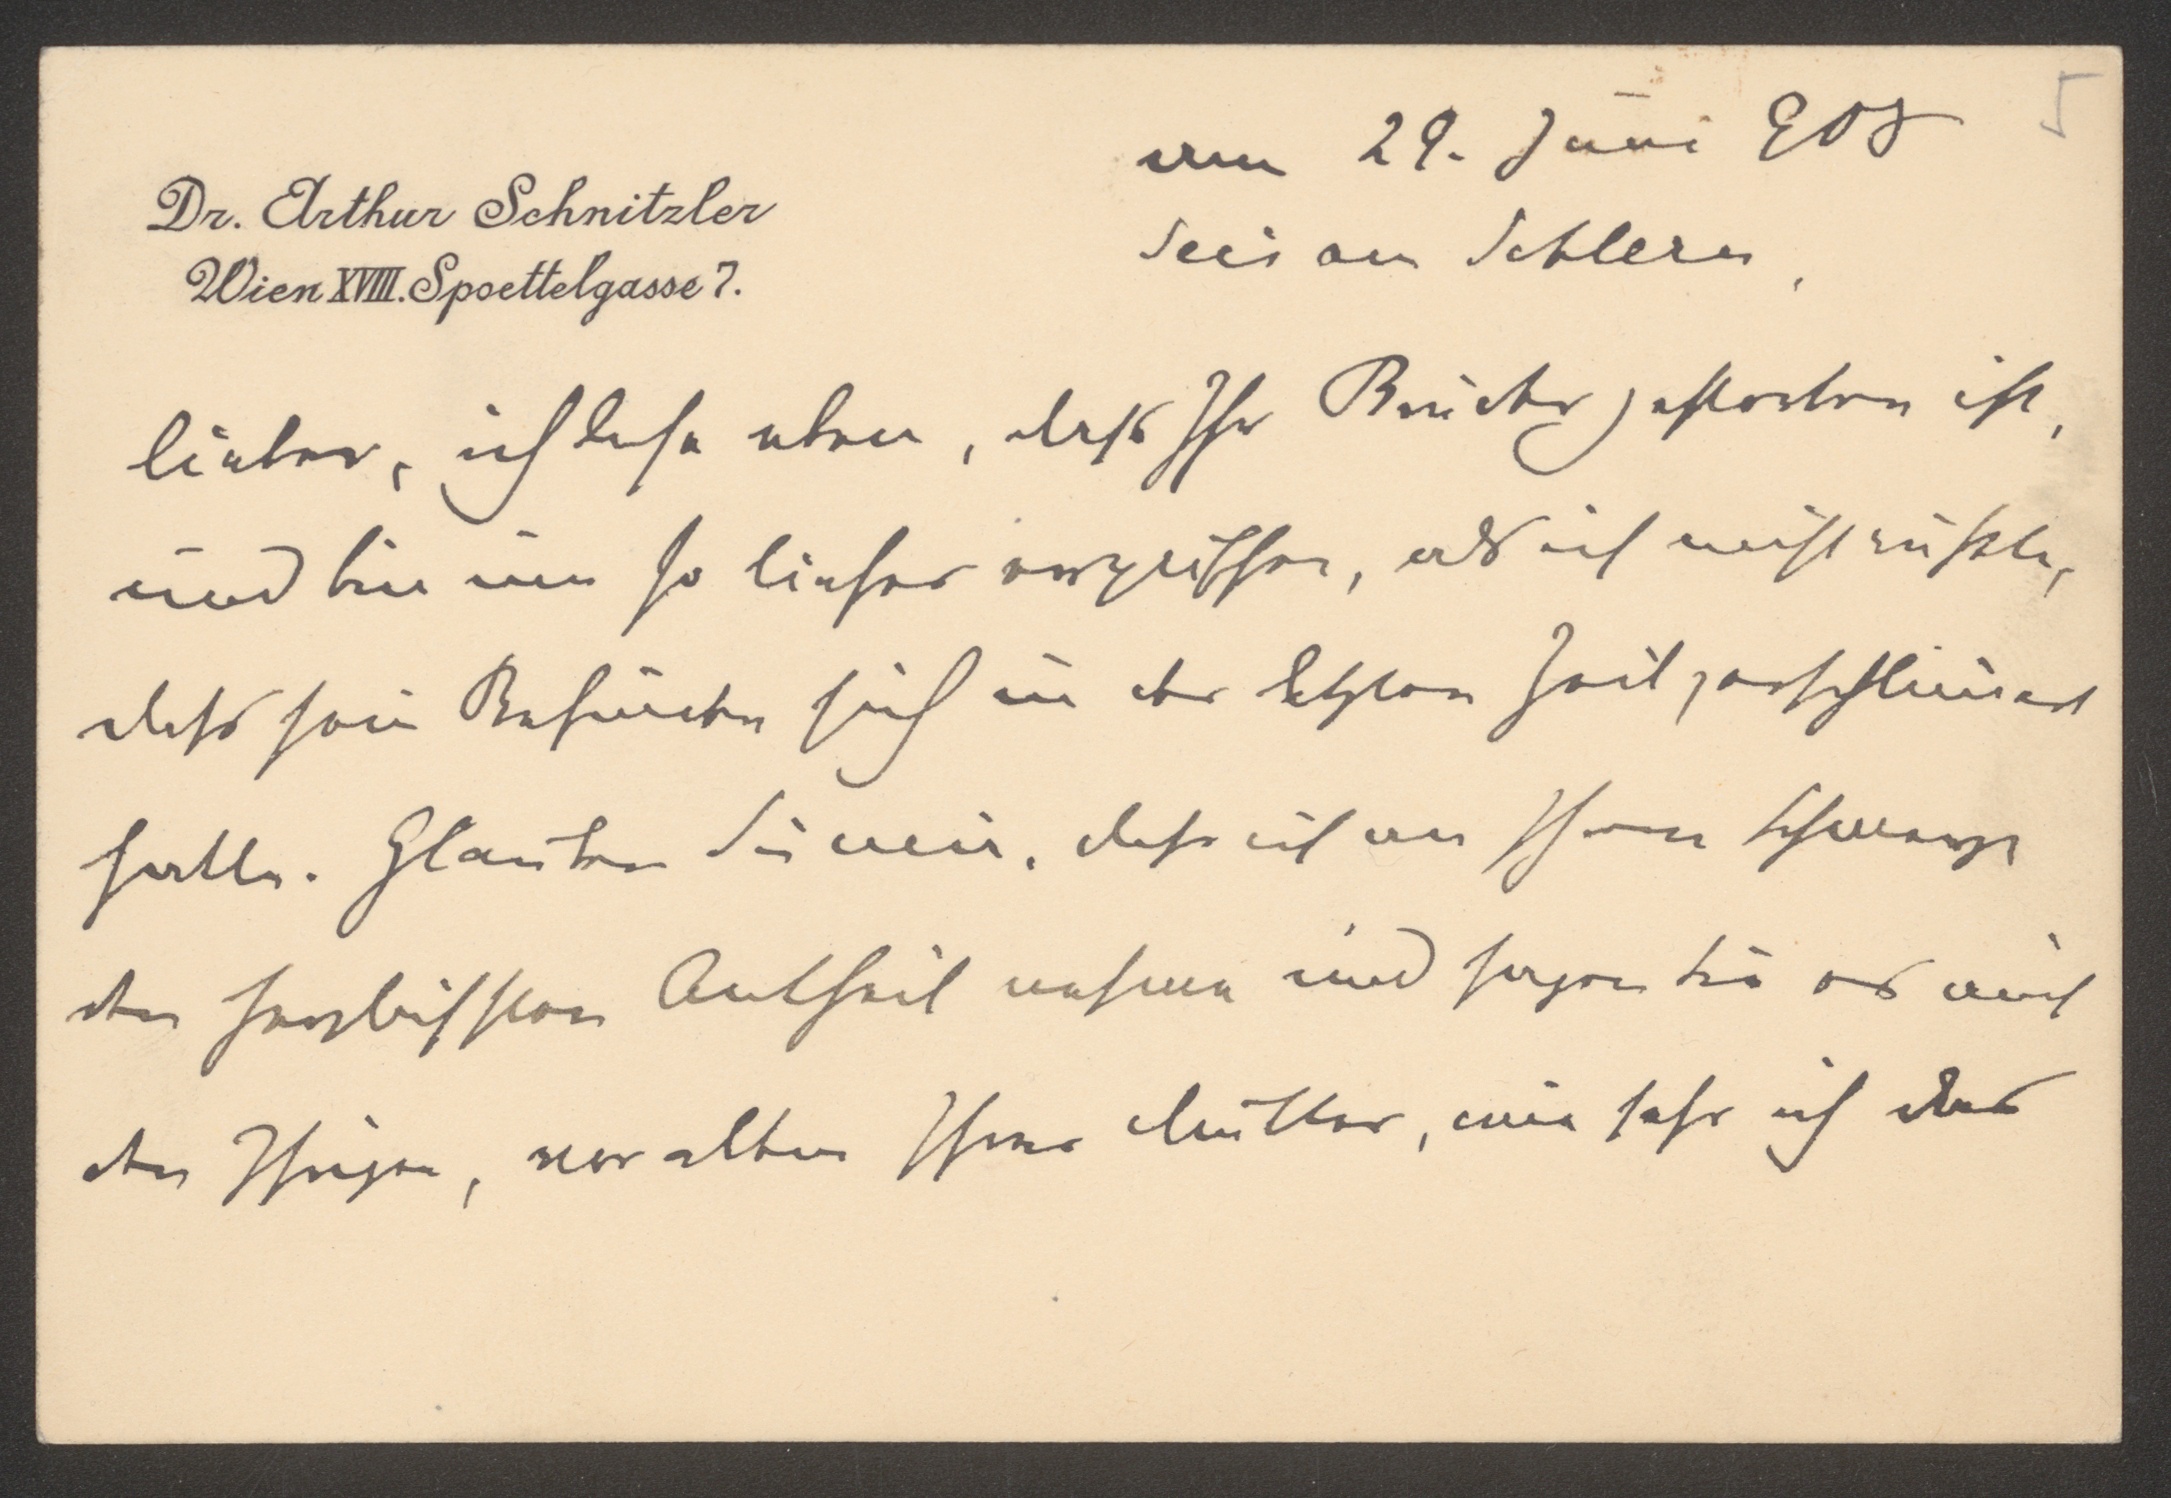 Dr. Arthur Schnitzler
Wien XVIII. Spoettelgasse 7.
5
am 29. Juni 908
Seis am Schlern,
lieber, ich lese eben, daſs Ihr Bruder gestorben ist,
und bin um so tiefer ergriffen, als ich nicht wußte,
daſs sein Befinden sich in der letzten Zeit verschlimmert
hatte. Glauben Sie mir, daſs ich an Ihrem Schmerze
den herzlichsten Antheil nehme und sagen Sie es auch
den Ihrigen, vor allem Ihrer Mutter, wie sehr ich das